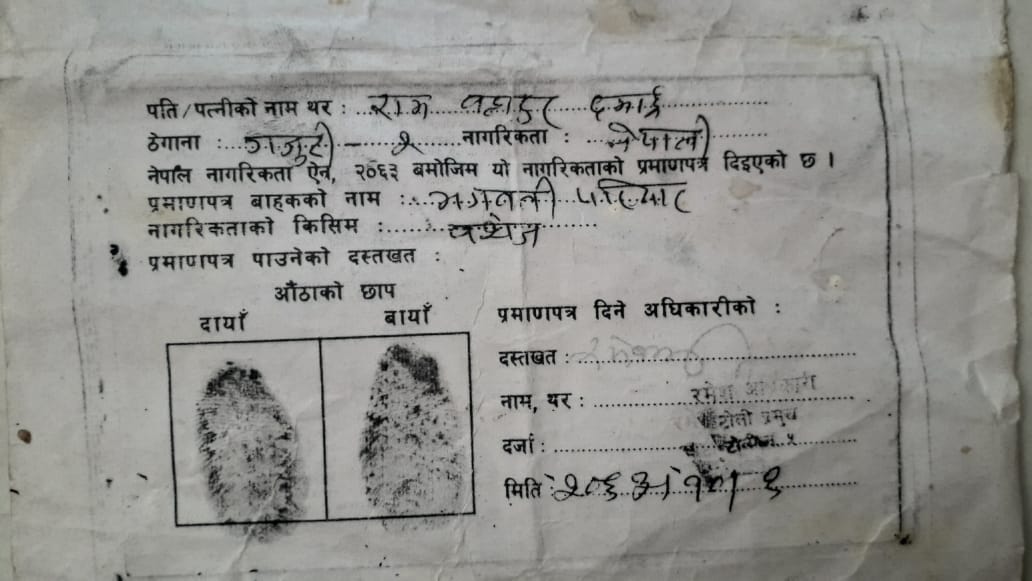 पति/पत्नीको नाम थर : राम बहादुर दमाई
ठेगाना : गजुरी - २ नागरिकता : नेपाली
नेपाल नागरिकता ऐन, २०६३ बमोजिम यो नागरिकताको प्रमाणपत्र दिइएको छ ।
प्रमाणपत्र बाहकको नाम : भगवती परियार
नागरिकताको किसिम : वंशज
प्रमाणपत्र पाउनेको दस्तखत :
औंठाको छाप
दायाँ बायाँ
प्रमाणपत्र दिने अधिकारीको :
दस्तखत :
नाम, थर : रमेश अधिकारी
टोली प्रमुख
दर्जा :
मिति : २०६३।